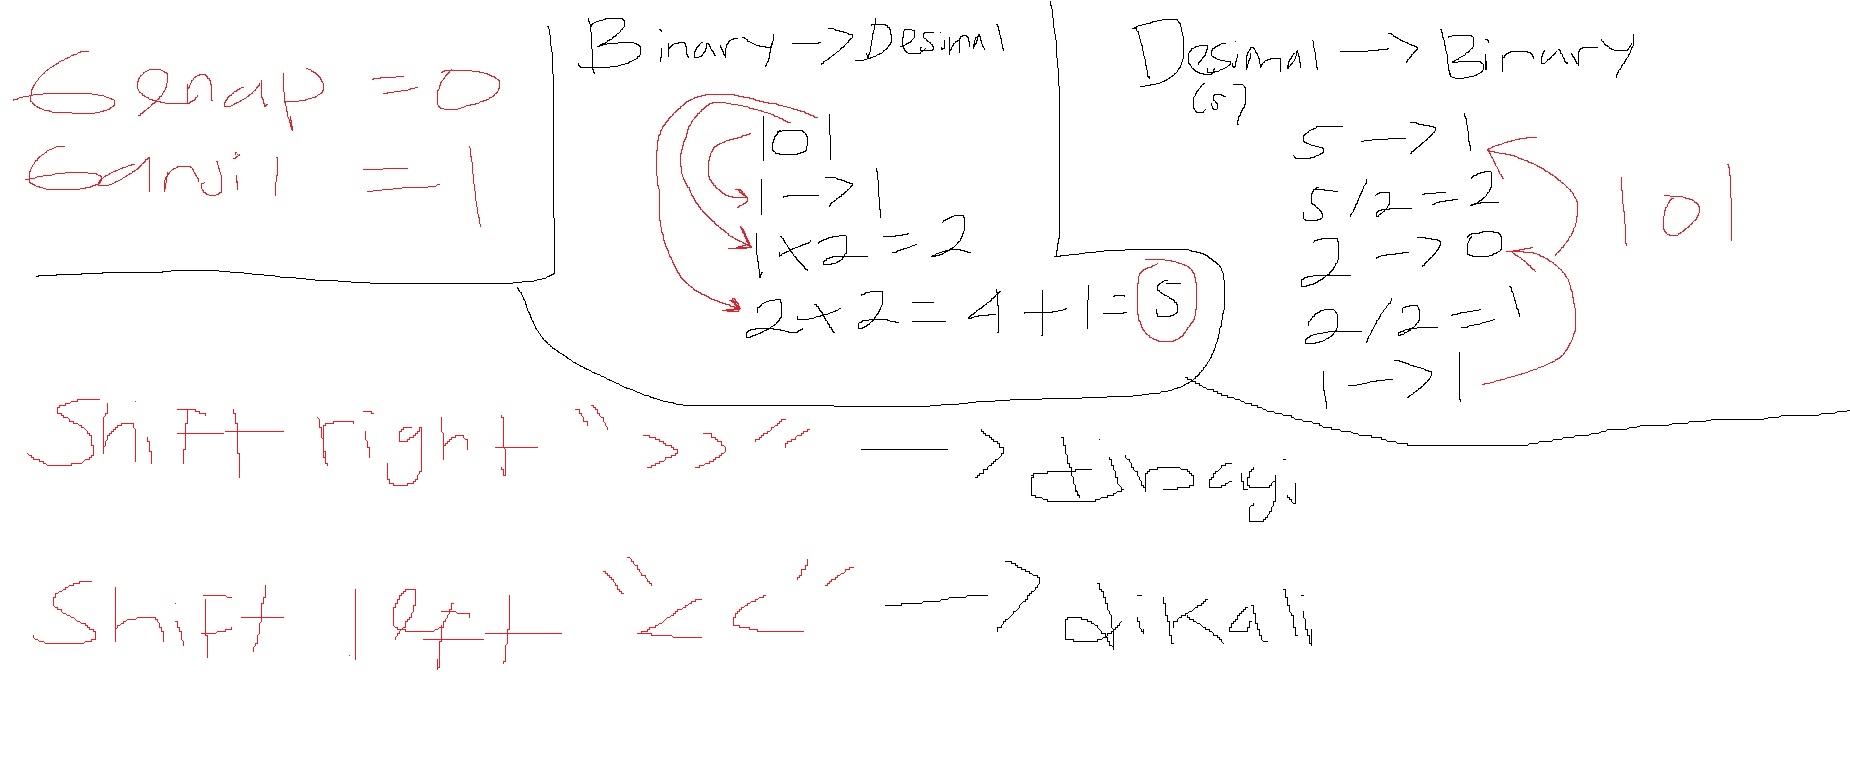 Genap = 0
Ganjil = 1
Binary -> Desimal
101
1 -> 1
1 x 2 = 2
2 x 2 = 4 + 1 = 5
Desimal -> Binary
(5)
5 -> 1
5/2 = 2
2 -> 0
2/2 = 1
1 -> 1
101
Shift right ">>" -> dibagi
Shift left "<<" -> dikali